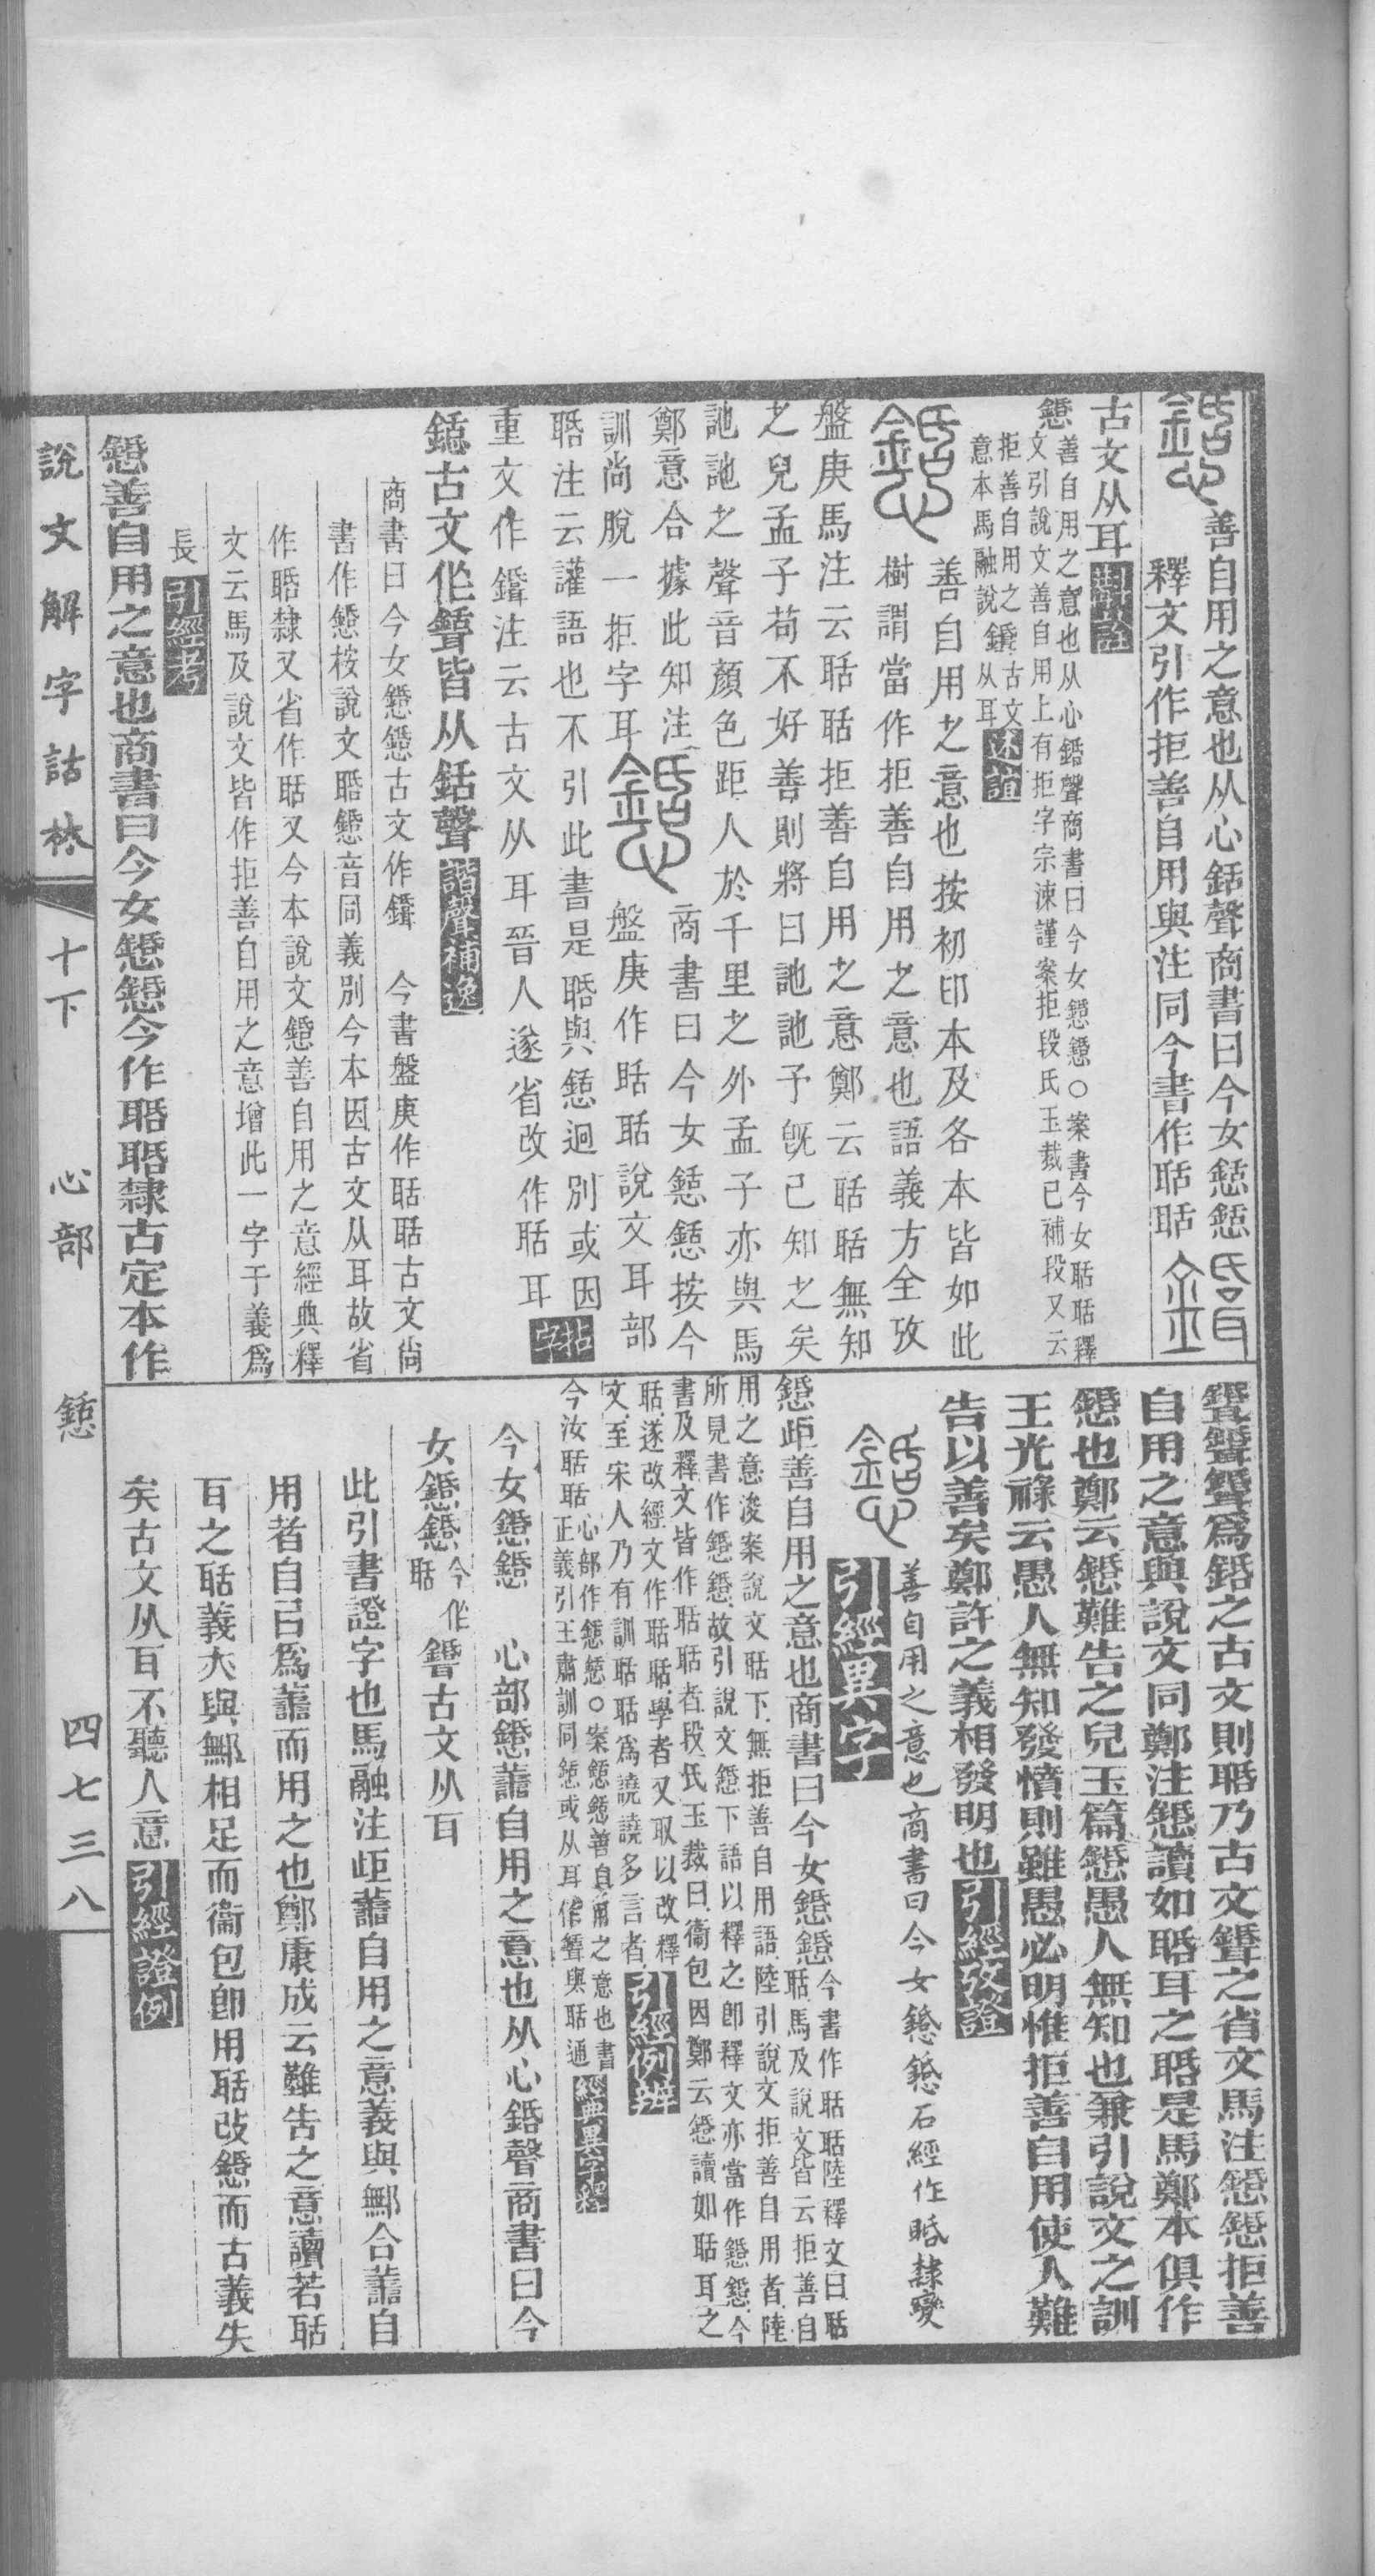 善自用之意也从心銛聲商書曰今女懖懖
釋文引作拒善自用與注同今書作聒聒
古文从耳
懖善自用之意也从心銛聲商書曰今女懖懖○案書今女聒聒釋
文引說文善自用上有拒字宗涑謹案拒段氏玉裁已補段又云
拒善自用之 古文
意本馬融說 从耳 述誼
善自用之意也按初印本及各本皆如此
樹謂當作拒善自用之意也語義方全攷
盤庚馬注云聒聒拒善自用之意鄭云聒聒無知
之皃孟子苟不好善則將曰訑訑予旣已知之矣
訑訑之聲音顏色距人於千里之外孟子亦與馬
鄭意合據此知注 商書曰今女懖懖按今
訓尙脫一拒字耳 盤庚作聒聒說文耳部
聒注云讙語也不引此書是聒與懖迥別或因
重文作𨨱注云古文从耳晉人遂省改作聒耳 拈字
懖古文作𨨱皆从銛聲 諧聲補逸
商書曰今女懖懖古文作𨨱 今書盤庚作聒聒古文尙
書作懖桉說文聒懖音同義別今本因古文从耳故省
作聒隸又省作聒又今本說文懖善自用之意經典釋
文云馬及說文皆作拒善自用之意增此一字于義爲
長 引經考
懖善自用之意也商書曰今女懖懖今作聒聒隸古定本作
說文解字詁林 十下 心部 懖 四七三八
𨨱𨨱𨨱爲銛之古文則聒乃古文𨨱之省文馬注懖懖拒善
自用之意與說文同鄭注懖讀如聒耳之聒是馬鄭本俱作
懖也鄭云懖難告之皃玉篇懖愚人無知也兼引說文之訓
王光祿云愚人無知發憤則雖愚必明惟拒善自用使人難
告以善矣鄭許之義相發明也 引經攷證
善自用之意也商書曰今女懖懖石經作聒隸變
引經異字
懖歫善自用之意也商書曰今女懖懖今書作聒聒陸釋文曰聒
聒馬及說文皆云拒善自
用之意浚案說文聒下無拒善自用語陸引說文拒善自用者陸
所見書作懖懖故引說文懖下語以釋之卽釋文亦當作懖懖今
書及釋文皆作聒聒者段氏玉裁曰衞包因鄭云懖讀如聒耳之
聒遂改經文作聒聒學者又取以改釋
文至宋人乃有訓聒聒爲譊譊多言者 引經例辨
今汝聒聒心部作懖懖○案懖懖善自用之意也書
正義引王肅訓同懖或从耳作𨨱與聒通 經典異字釋
今女懖懖 心部懖譱自用之意也从心銛聲商書曰今
女懖懖今作聒 𨨱古文从耳
此引書證字也馬融注歫譱自用之意義與鄦合譱自
用者自㠯爲譱而用之也鄭康成云難告之意讀若聒
耳之聒義亦與鄦相足而衞包卽用聒改懖而古義失
矣古文从耳不聽人意 引經證例